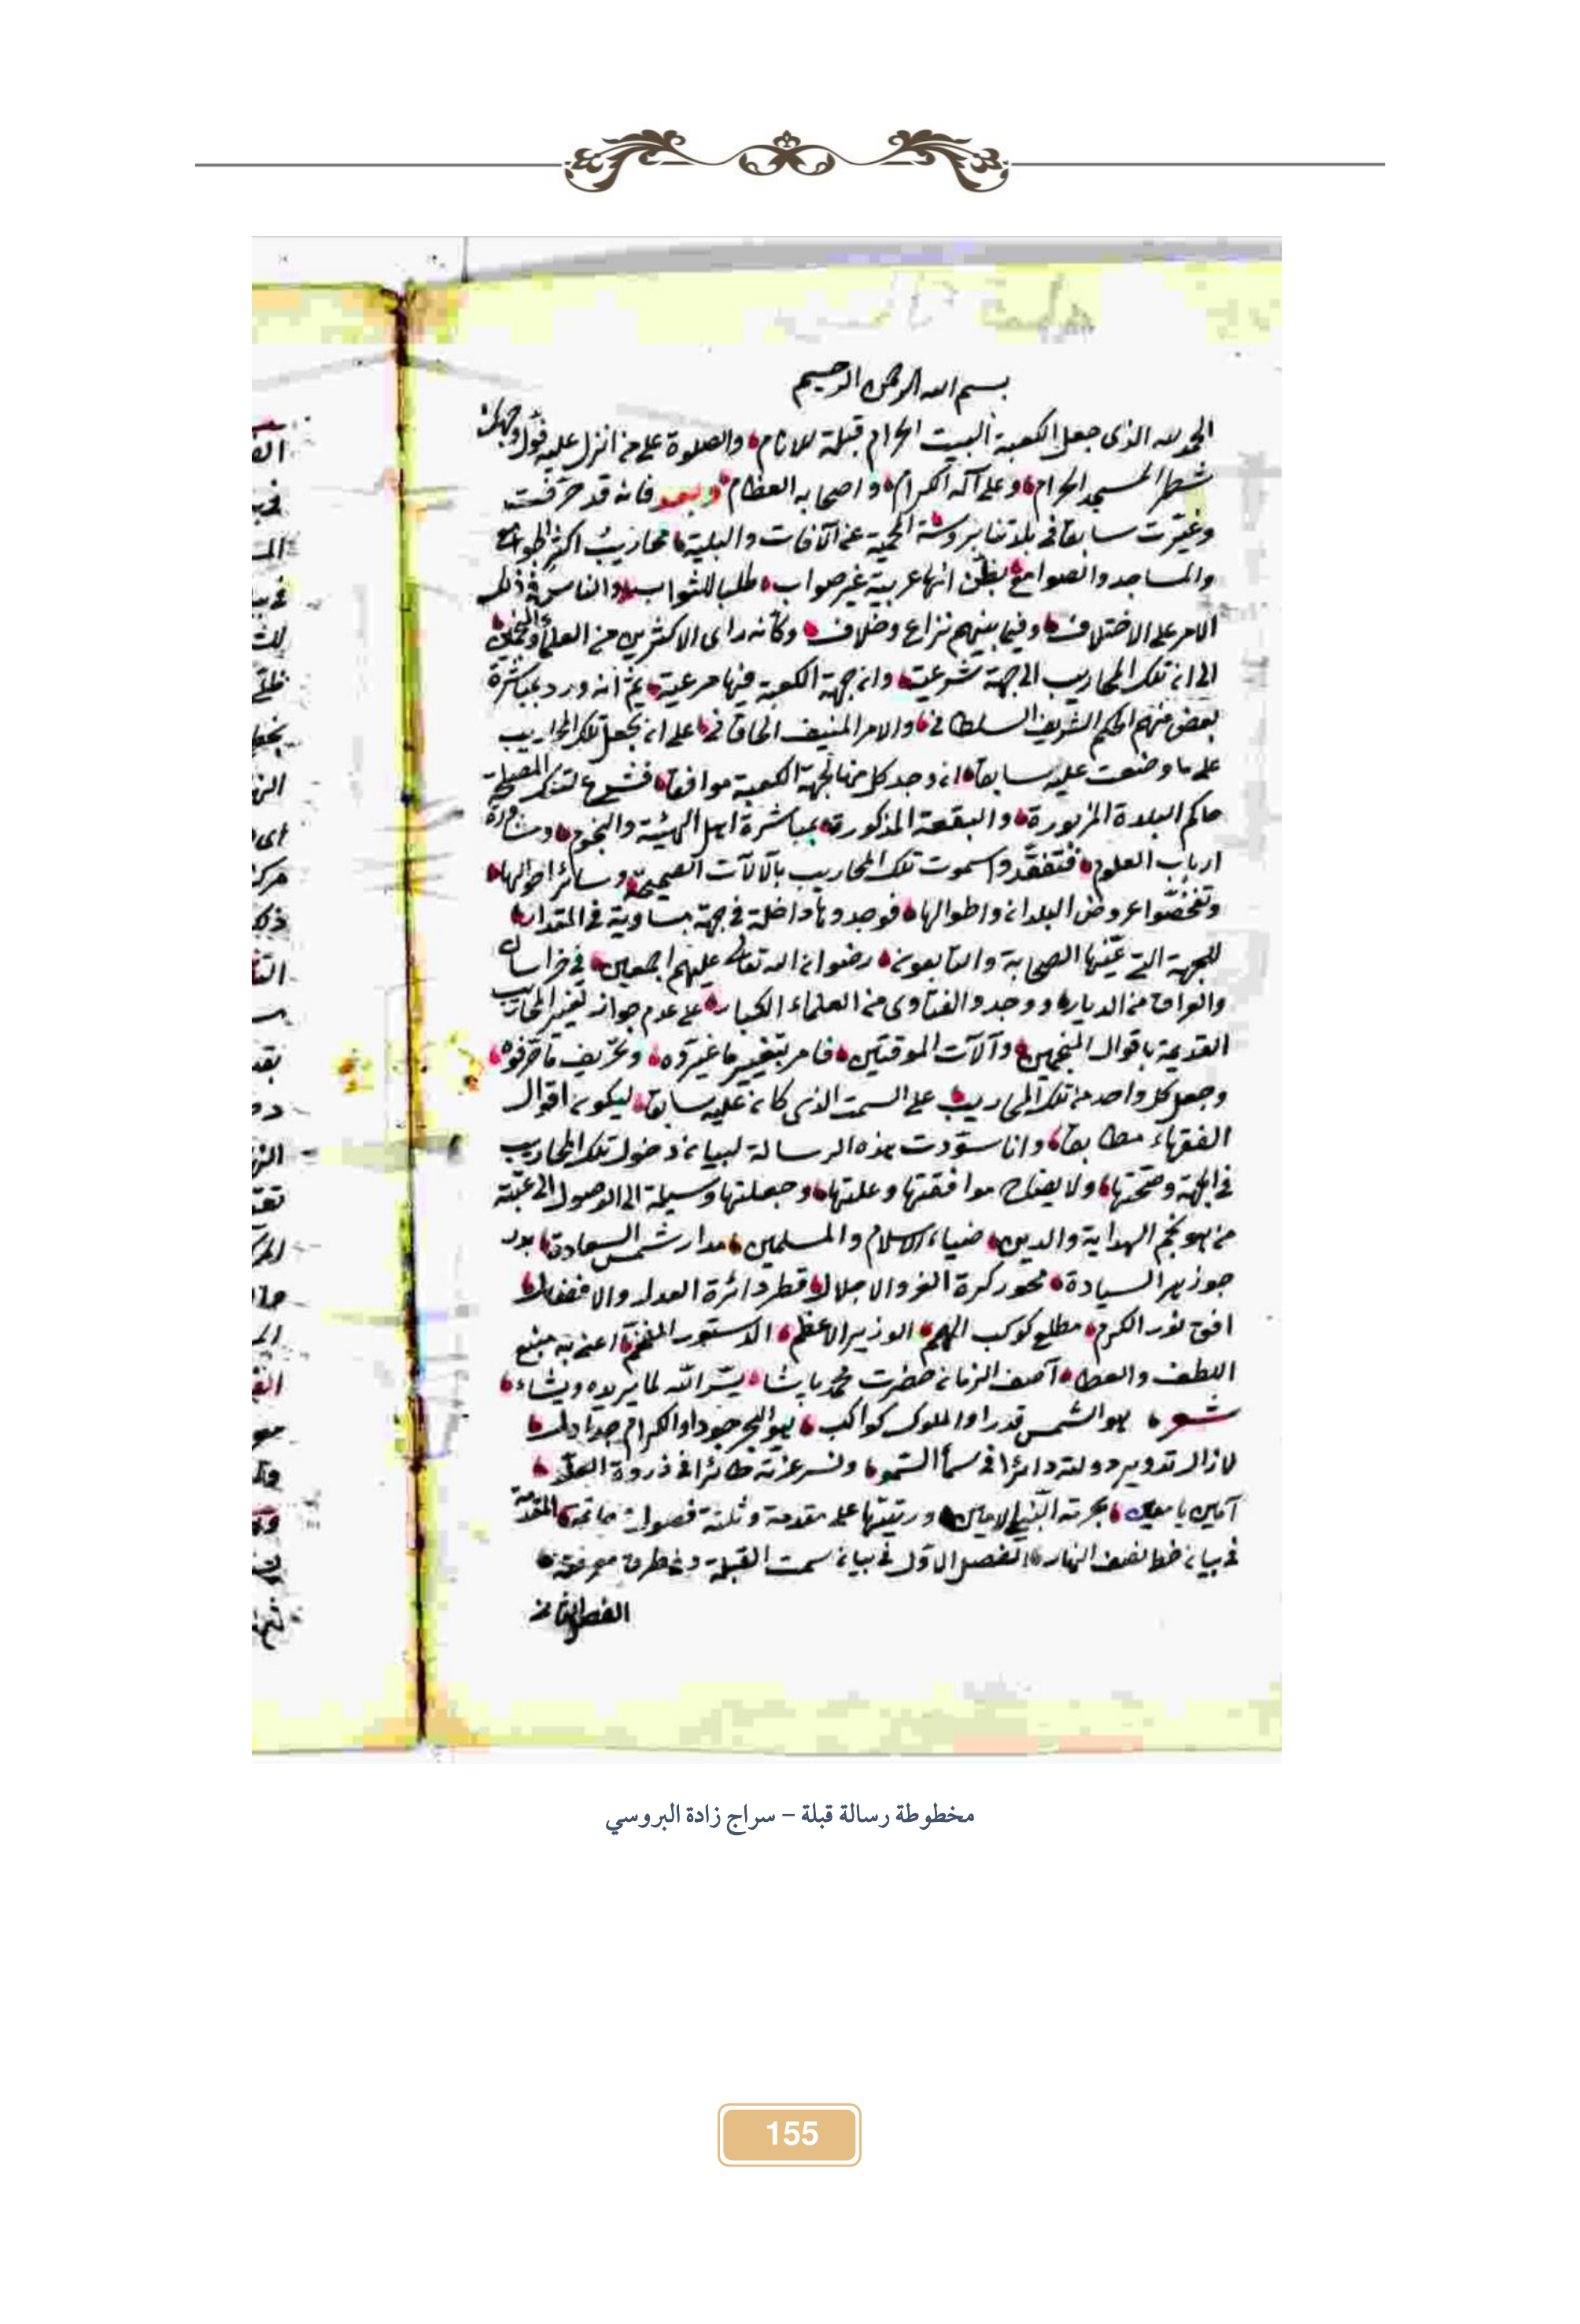 بسم الله الرحمن الرحيم
الحمد لله الذى جعل الكعبة البيت الحرام قبلة للانام والصلوة على من انزل عليه فول وجهك
شطر المسجد الحرام وعلى آله الكرام واصحابه العظام وبعد فانه قد حرفت
وغيرت سابقا فى بلدتنا بروسة المحمية عن الآفات والبلية محاريب اكثر الجوامع
والمساجد والصوامع بظن انها عربية غير صواب طلبا للثواب والناس فى ذلك
الامر على الاختلاف وفيما بينهم نزاع وخلاف وكأنه راى الاكثرين من العلماء والمنجمين
الى ان تلك المحاريب الى جهة شرعية وان جهة الكعبة فيها مرعية ثم انه ورد بمباشرة
بعض منهم الحكم الشريف السلطانى والامر المنيف الخاقانى على ان يجعل تلك المحاريب
على ما وضعت عليه سابقا ان وجد كل منها لجهة الكعبة موافقا فشرع لتلك المصلحة
حاكم البلدة المزبورة والبقعة المذكورة بمباشرة اهل الهيئة والنجوم ومشاورة
ارباب العلوم فتفقدوا سموت تلك المحاريب بالآلات الصحيحة وسائر احوالها
وتفحصوا عروض البلدان واطوالها فوجدوها داخلة فى جهة مساوية فى المقدار
للجهة التى عينها الصحابة والتابعون رضوان الله تعالى عليهم اجمعين فى خراسان
والعراق من الديار ووجدوا الفتاوى من العلماء الكبار على عدم جواز تغيير المحاريب
القديمة باقوال المنجمين وآلات الموقتين فامر بتغيير ما غيروه وتحريف ما حرفوه
وجعل كل واحد من تلك المحاريب على السمت الذى كان عليه سابقا ليكون اقوال
الفقهاء مطابقا وانا سودت هذه الرسالة لبيان دخول تلك المحاريب
فى الجهة وصحتها ولايضاح موافقتها وعلتها وجعلتها وسيلة الى الوصول الى عتبة
من هو نجم الهداية والدين ضياء الاسلام والمسلمين مدار شمس السعادة بدر
جوزهر السيادة محور كرة العز والاجلال قطر دائرة العدل والافضال
افق نور الكرم مطلع كوكب الهمم الوزير الاعظم الدستور المفخم اعنى به منبع
اللطف والعطا آصف الزمان حضرت محمد پاشا يسر الله لما يريده ويشاء
شعر هو الشمس قدرا والملوك كواكب هو البحر جودا والكرام جداول
لازال تدوير دولته دائرا فى سماء السمو ونسر عزته طائرا فى ذروة العلو
آمين يا معين بحرمة النبى الامين ورتبتها على مقدمة وثلثة فصول خاتمة المقدمة
فى بيان خط نصف النهار الفصل الاول فى بيان سمت القبلة وطرق معرفته
الفصل الثانى
مخطوطة رسالة قبلة – سراج زادة البروسي
155